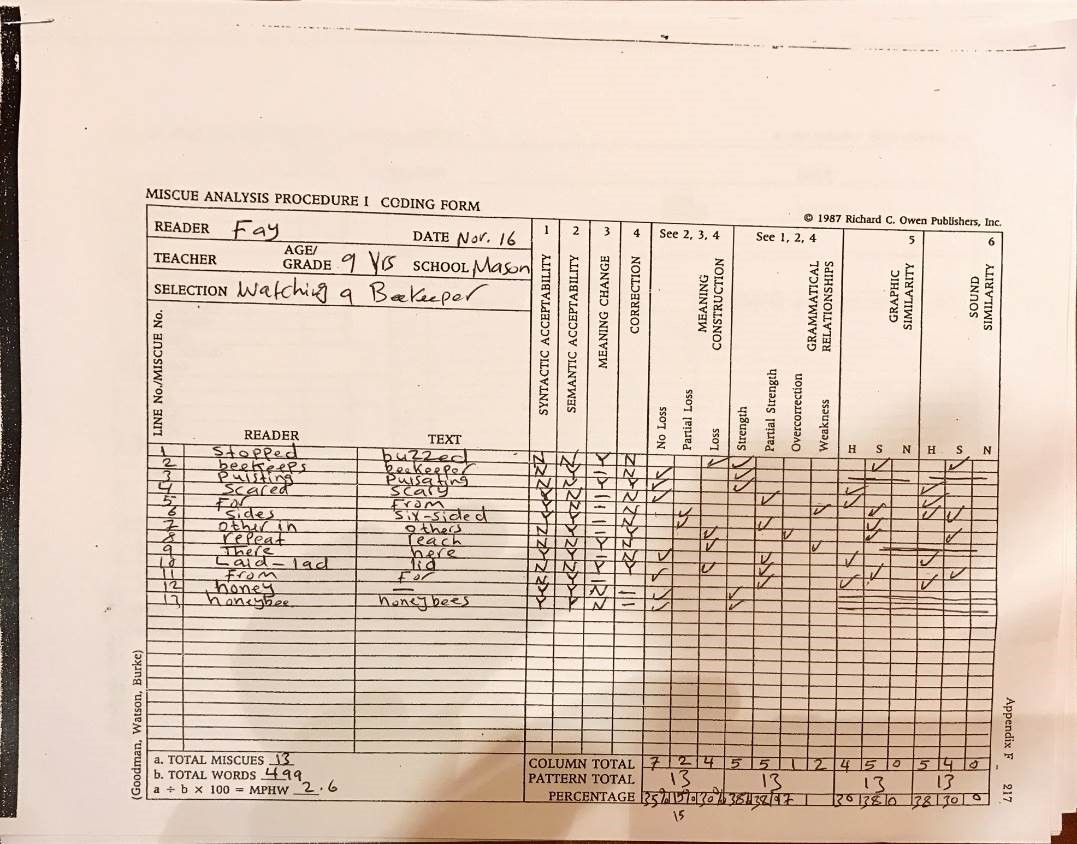 MISCUE ANALYSIS PROCEDURE I CODING FORM
© 1987 Richard C. Owen Publishers, Inc.
READER Fay DATE Nov. 16
TEACHER AGE/GRADE 9 Yrs SCHOOL Mason
SELECTION Watching a Beekeeper
1 2 3 4 See 2, 3, 4 See 1, 2, 4 5 6
LINE No./MISCUE No.
READER TEXT
SYNTACTIC ACCEPTABILITY
SEMANTIC ACCEPTABILITY
MEANING CHANGE
CORRECTION
MEANING CONSTRUCTION
No Loss
Partial Loss
Loss
GRAMMATICAL RELATIONSHIPS
Strength
Partial Strength
Overcorrection
Weakness
GRAPHIC SIMILARITY
H S N
SOUND SIMILARITY
H S N
1 Stopped buzzed
2 beekeeps beekeeper
3 Pulsting Pulsating
4 Scared Scary
5 For From
6 Sides Six-sided
7 other in others
8 repeat reach
9 There here
10 Laid-lad lid
11 From For
12 honey —
13 honeybee honeybees
a. TOTAL MISCUES 13
b. TOTAL WORDS 499
a ÷ b x 100 = MPHW 2.6
COLUMN TOTAL 7 2 4 5 5 1 2 4 5 0 5 4 0
PATTERN TOTAL 13 13 13 13
PERCENTAGE
15
(Goodman, Watson, Burke)
Appendix F 217